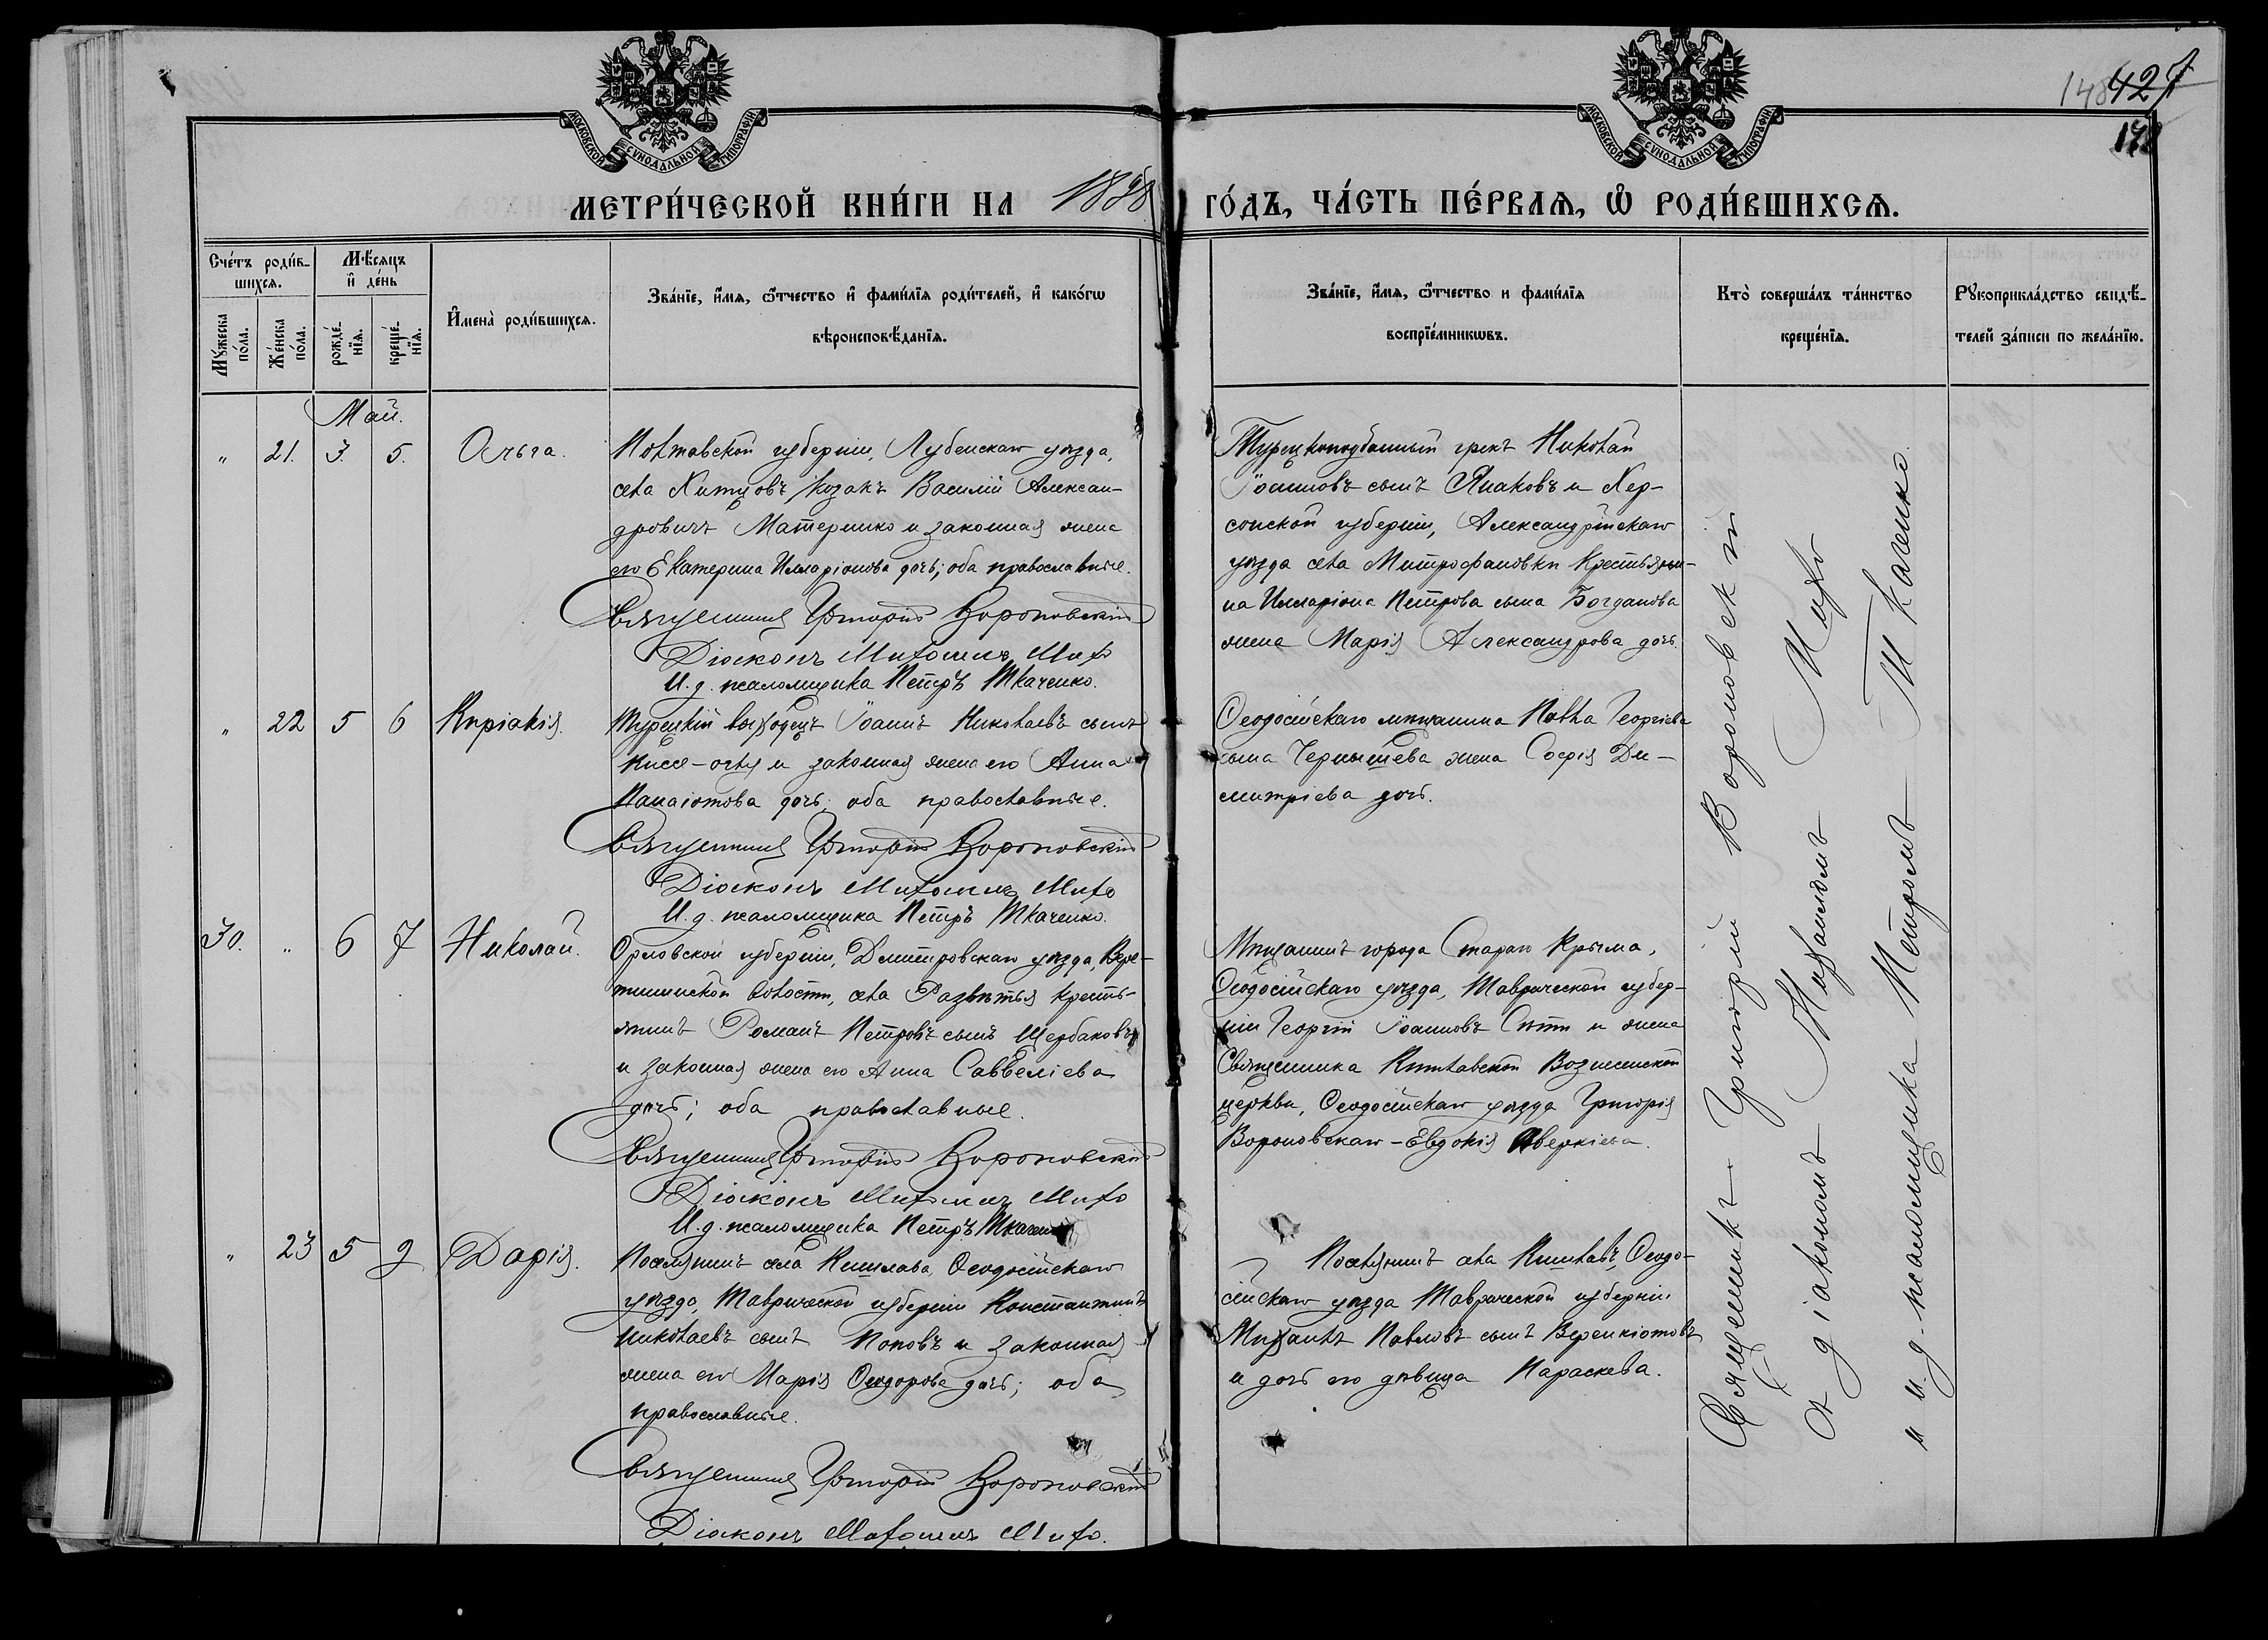 МОСКОВСКОЙ СѴНОДАЛЬНОЙ ТИПОГРАФІИ
МОСКОВСКОЙ СѴНОДАЛЬНОЙ ТИПОГРАФІИ
427
МЕТРИ́ЧЕСКОЙ КНИ́ГИ НА
ГО́ДЪ, ЧА́СТЬ ПЕ́РВАЯ, Ѡ РОДИ́ВШИХСЯ.
Сче́тъ роди́в-
шихся.
Мꙋ́жеска по́ла.
Же́нска по́ла.
Мѣ́сяцъ
и де́нь
рожде́-
нїя.
креще́-
нїя.
Имена̀ роди́вшихся.
Зва́нїе, и́мя, ѻ҆́тчество и фами́лїя роди́телей, и како́гѡ
вѣроисповѣ́данїя.
Зва́нїе, и́мя, ѻ҆́тчество и фами́лїя
воспрїе́мникѡвъ.
Кто̀ соверша́лъ та́инство
креще́нїя.
Рꙋкоприкла́дство свидѣ́-
телей за́писи по жела́нїю.
Май.
" 21. 3. 5. Ольга.
Полтавской губерніи, Лубенскаго уѣзда,
села Хитцовъ козакъ Василій Алексан-
дровичъ Материнко и законная жена
его Екатерина Илларіонова дочь; оба православные.
Священникъ Григорій Вороновскій
Діаконъ Михаилъ Михо
И. д. псаломщика Петръ Ткаченко.
Турецкоподанный грекъ Николай
Іоанновъ сынъ Янаковъ и Хер-
сонской губерніи, Александрійскаго
уѣзда села Митрофановки крестьяни-
на Илларіона Петрова сына Богданова
жена Марія Александрова дочь.
" 22 5 6 Киріакія.
Турецкій выходецъ Іоаннъ Николаевъ сынъ
Киссе-оглу и законная жена его Анна
Панаіотова дочь; оба православные.
Священникъ Григорій Вороновскій
Діаконъ Михаилъ Михо
И. д. псаломщика Петръ Ткаченко.
Ѳеодосійскаго мѣщанина Павла Георгіева
сына Чернышева жена Софія Ди-
митріева дочь.
30. " 6 7 Николай.
Орловской губерніи, Дмитровскаго уѣзда, Вере-
тининской волости, села Развѣтья кресть-
янинъ Романъ Петровъ сынъ Щербаковъ
и законная жена его Анна Савеліева
дочь; оба православные.
Священникъ Григорій Вороновскій
Діаконъ Михаилъ Михо
И. д. псаломщика Петръ Ткаченко
Мѣщанинъ города Стараго Крыма,
Ѳеодосійскаго уѣзда, Таврической губер-
ніи Георгій Іоанновъ и жена
Священника Кишлавской Вознесенской
церкви, Ѳеодосійскаго уѣзда Григорія
Вороновскаго - Евдокія Аверкіева.
" 23 5 9 Дарія.
Поселянинъ села Кишлава, Ѳеодосійскаго
уѣзда, Таврической губерніи Константинъ
Николаевъ сынъ Поповъ и законная
жена его Марія Ѳеодорова дочь; оба
православные.
Священникъ Григорій Вороновскій
Діаконъ Михаилъ Михо.
Поселянинъ села Кишлавъ, Ѳеодо-
сійскаго уѣзда Таврической губерніи
Михаилъ Павловъ сынъ
и дочь его дѣвица Параскева.
Священникъ Григорій Вороновскій
съ діакономъ Михаиломъ Михо
и и. д. псаломщика Петромъ Ткаченко.